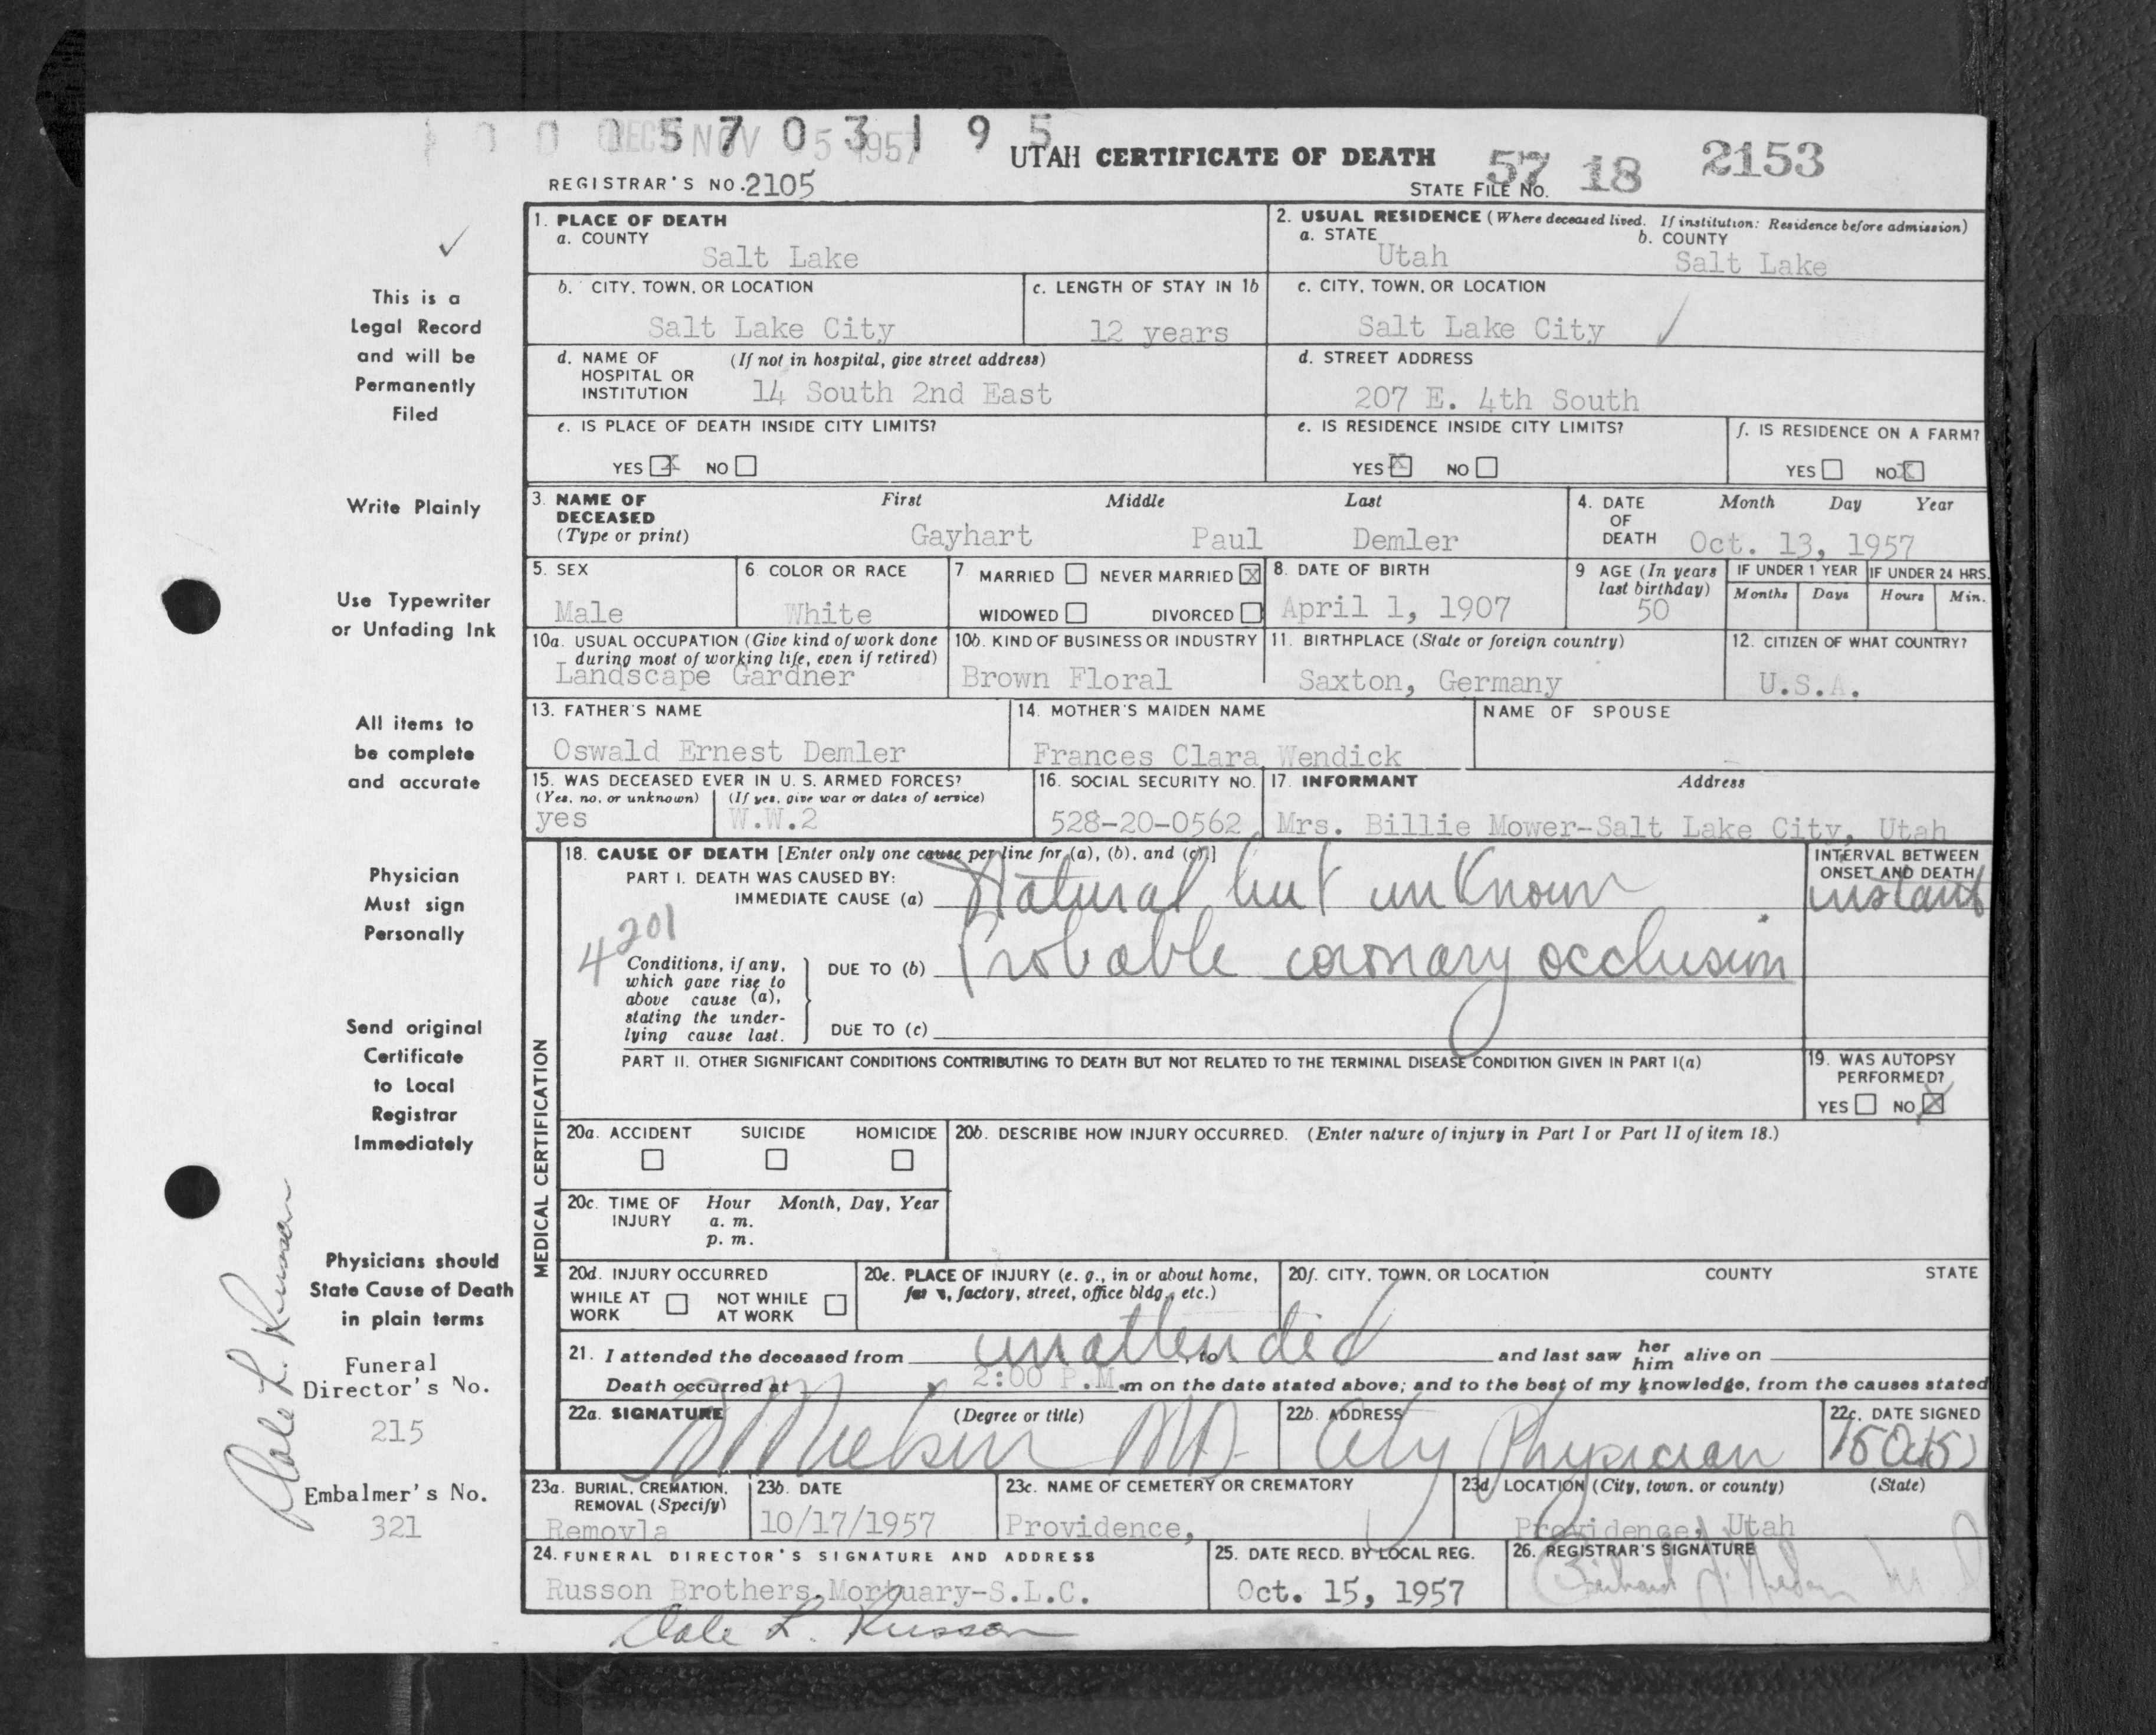 5 7 0 3 1 9 5
NOV 5 1957
UTAH CERTIFICATE OF DEATH
57 18 2153
REGISTRAR'S NO. 2105
STATE FILE NO.
1. PLACE OF DEATH
a. COUNTY
Salt Lake
2. USUAL RESIDENCE (Where deceased lived. If institution: Residence before admission)
a. STATE b. COUNTY
Utah Salt Lake
b. CITY, TOWN, OR LOCATION
Salt Lake City
c. LENGTH OF STAY IN 1b
12 years
c. CITY, TOWN, OR LOCATION
Salt Lake City
d. NAME OF HOSPITAL OR INSTITUTION (If not in hospital, give street address)
14 South 2nd East
d. STREET ADDRESS
207 E. 4th South
e. IS PLACE OF DEATH INSIDE CITY LIMITS?
YES X NO
e. IS RESIDENCE INSIDE CITY LIMITS?
YES X NO
f. IS RESIDENCE ON A FARM?
YES NO X
3. NAME OF DECEASED (Type or print)
First Middle Last
Gayhart Paul Demler
4. DATE OF DEATH
Month Day Year
Oct. 13, 1957
5. SEX
Male
6. COLOR OR RACE
White
7. MARRIED NEVER MARRIED X
WIDOWED DIVORCED
8. DATE OF BIRTH
April 1, 1907
9 AGE (In years last birthday)
50
IF UNDER 1 YEAR
Months Days
IF UNDER 24 HRS.
Hours Min.
10a. USUAL OCCUPATION (Give kind of work done during most of working life, even if retired)
Landscape Gardner
10b. KIND OF BUSINESS OR INDUSTRY
Brown Floral
11. BIRTHPLACE (State or foreign country)
Saxton, Germany
12. CITIZEN OF WHAT COUNTRY?
U.S.A.
13. FATHER'S NAME
Oswald Ernest Demler
14. MOTHER'S MAIDEN NAME
Frances Clara Wendick
NAME OF SPOUSE
15. WAS DECEASED EVER IN U. S. ARMED FORCES?
(Yes, no, or unknown) (If yes, give war or dates of service)
yes W.W.2
16. SOCIAL SECURITY NO.
528-20-0562
17. INFORMANT Address
Mrs. Billie Mower-Salt Lake City, Utah
MEDICAL CERTIFICATION
18. CAUSE OF DEATH [Enter only one cause per line for (a), (b), and (c).]
PART I. DEATH WAS CAUSED BY:
IMMEDIATE CAUSE (a) Natural but unknown
INTERVAL BETWEEN ONSET AND DEATH
instant
4201
Conditions, if any, which gave rise to above cause (a), stating the underlying cause last.
DUE TO (b) Probable coronary occlusion
DUE TO (c)
PART II. OTHER SIGNIFICANT CONDITIONS CONTRIBUTING TO DEATH BUT NOT RELATED TO THE TERMINAL DISEASE CONDITION GIVEN IN PART I(a)
19. WAS AUTOPSY PERFORMED?
YES NO X
20a. ACCIDENT SUICIDE HOMICIDE
20b. DESCRIBE HOW INJURY OCCURRED. (Enter nature of injury in Part I or Part II of item 18.)
20c. TIME OF INJURY Hour Month, Day, Year
a. m.
p. m.
20d. INJURY OCCURRED
WHILE AT WORK NOT WHILE AT WORK
20e. PLACE OF INJURY (e. g., in or about home, farm, factory, street, office bldg., etc.)
20f. CITY, TOWN, OR LOCATION COUNTY STATE
21. I attended the deceased from unattended, to and last saw her him alive on
Death occurred at 2:00 P.M. m on the date stated above; and to the best of my knowledge, from the causes stated
22a. SIGNATURE (Degree or title)
MD.
22b. ADDRESS
City Physician
22c. DATE SIGNED
15 Oct 5
23a. BURIAL, CREMATION, REMOVAL (Specify)
Removla
23b. DATE
10/17/1957
23c. NAME OF CEMETERY OR CREMATORY
Providence,
23d. LOCATION (City, town, or county) (State)
Providence, Utah
24. FUNERAL DIRECTOR'S SIGNATURE AND ADDRESS
Russon Brothers Mortuary-S.L.C.
Dale L. Russon
25. DATE RECD. BY LOCAL REG.
Oct. 15, 1957
26. REGISTRAR'S SIGNATURE
This is a
Legal Record
and will be
Permanently
Filed
Write Plainly
Use Typewriter
or Unfading Ink
All items to
be complete
and accurate
Physician
Must sign
Personally
Send original
Certificate
to Local
Registrar
Immediately
Physicians should
State Cause of Death
in plain terms
Funeral
Director's No.
215
Embalmer's No.
321
Dale L. Russon